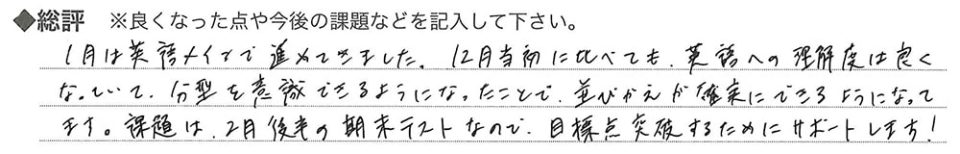 ◆総評 ※良くなった点や今後の課題などを記入して下さい。
1月は英語メインで進めてきました。12月当初に比べても、英語への理解度は良く
なっていて、分型を意識できるようになったことで、並びかえが確実にできるようになって
ます。課題は、2月後半の期末テストなので、目標点突破するためにサポートします!